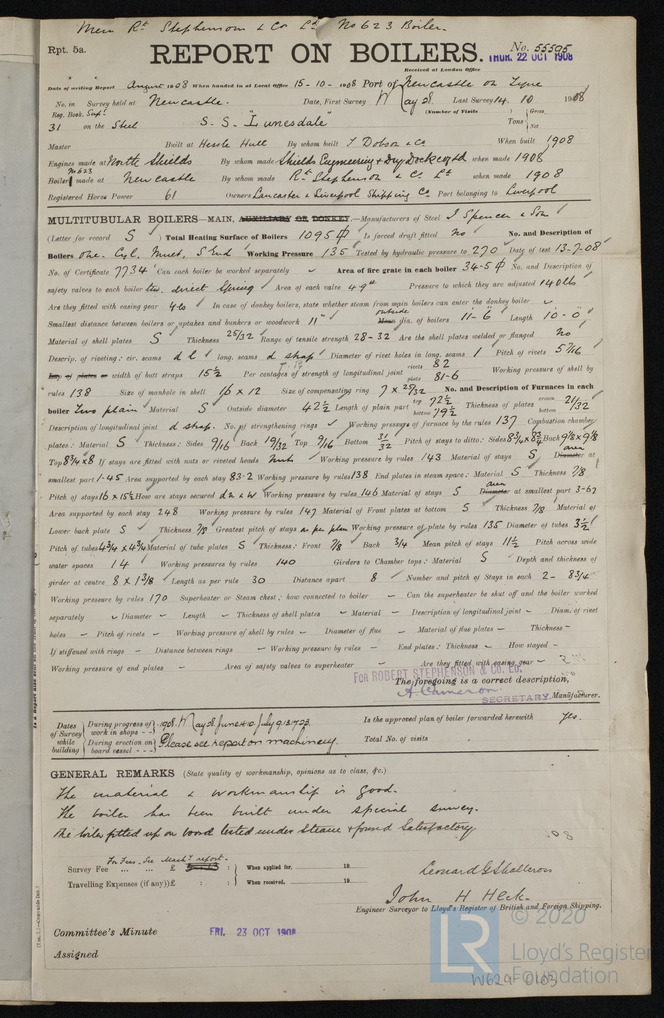 Messrs Rt Stephenson & Co Ltd No 623 Boiler.
Rpt. 5a.
REPORT ON BOILERS.
No. 55505
THUR. 22 OCT 1908
Received at London Office
Date of writing Report August 1908 When handed in at Local Office 15-10-1908 Port of Newcastle on Tyne
No. in Survey held at Newcastle. Date, First Survey May 8 Last Survey 14. 10 1908
Reg. Book. (Number of Visits ) Gross
31 on the Steel S.S. "Lunesdale" Tons Net
Master Built at Hessle Hull By whom built J Dobson & Co When built 1908
Engines made at North Shields By whom made Shields Engineering & Dry Dock Co Ltd when made 1908
No 623
Boiler made at Newcastle By whom made Rt Stephenson & Co. Lt when made 1908
Registered Horse Power 61 Owners Lancaster & Liverpool Shipping Co Port belonging to Liverpool
MULTITUBULAR BOILERS—MAIN, AUXILIARY OR DONKEY.—Manufacturers of Steel J Spencer & Son
(Letter for record S ) Total Heating Surface of Boilers 1095 ф Is forced draft fitted No No. and Description of
Boilers One. Cyl. Mult, S End Working Pressure 135 Tested by hydraulic pressure to 270 Date of test 13-7-08
No. of Certificate 7734 Can each boiler be worked separately Area of fire grate in each boiler 34-5 ф No. and Description of
safety valves to each boiler two. direct Spring Area of each valve 4-9 Pressure to which they are adjusted 140 lbs
Are they fitted with easing gear Yes In case of donkey boilers, state whether steam from main boilers can enter the donkey boiler
Smallest distance between boilers or uptakes and bunkers or woodwork 11" outside Mean dia. of boilers 11-6 Length 10-0
Material of shell plates S Thickness 25/32 Range of tensile strength 28-32 Are the shell plates welded or flanged No
Descrip. of riveting: cir. seams d l long. seams d strap Diameter of rivet holes in long. seams 1 Pitch of rivets 5 7/16
Lap of plates or width of butt straps 15½ Per centages of strength of longitudinal joint rivets 82 plate 81-6 Working pressure of shell by
rules 138 Size of manhole in shell 16 x 12 Size of compensating ring 7 x 25/32 No. and Description of Furnaces in each
boiler Two plain Material S Outside diameter 42½ Length of plain part top 72½ bottom 79½ Thickness of plates crown bottom 21/32
Description of longitudinal joint d strap. No. of strengthening rings Working pressure of furnace by the rules 137 Combustion chamber
plates: Material S Thickness: Sides 9/16 Back 19/32 Top 9/16 Bottom 31/32 Pitch of stays to ditto: Sides 8¾ x 8¾ Back 9 1/8 x 9 1/8
Top 8¾ x 8 If stays are fitted with nuts or riveted heads Nuts Working pressure by rules 143 Material of stays S area Diameter at
smallest part 1-45 Area supported by each stay 83-2 Working pressure by rules 138 End plates in steam space: Material S Thickness 7/8
Pitch of stays 16 x 15½ How are stays secured d n & w Working pressure by rules 146 Material of stays S area Diameter at smallest part 3-67
Area supported by each stay 248 Working pressure by rules 147 Material of Front plates at bottom S Thickness 7/8 Material of
Lower back plate S Thickness 7/8 Greatest pitch of stays as per plan Working pressure of plate by rules 135 Diameter of tubes 3½
Pitch of tubes 4¾ x 4¾ Material of tube plates S Thickness: Front 7/8 Back 3/4 Mean pitch of stays 11½ Pitch across wide
water spaces 14 Working pressures by rules 140 Girders to Chamber tops: Material S Depth and thickness of
girder at centre 8 x 1 3/8 Length as per rule 30 Distance apart 8 Number and pitch of Stays in each 2- 8¾
Working pressure by rules 170 Superheater or Steam chest; how connected to boiler – Can the superheater be shut off and the boiler worked
separately – Diameter – Length – Thickness of shell plates – Material – Description of longitudinal joint – Diam. of rivet
holes – Pitch of rivets – Working pressure of shell by rules – Diameter of flue – Material of flue plates – Thickness –
If stiffened with rings – Distance between rings – Working pressure by rules – End plates: Thickness – How stayed –
Working pressure of end plates – Area of safety valves to superheater – Are they fitted with easing gear –
FOR ROBERT STEPHENSON & CO. LD.
The foregoing is a correct description,
A. Cameron
SECRETARY. Manufacturer.
Dates of Survey while building
During progress of work in shops - -
During erection on board vessel - - - Please see report on machinery.
Is the approved plan of boiler forwarded herewith Yes.
Total No. of visits
GENERAL REMARKS (State quality of workmanship, opinions as to class, &c.)
The material & workmanship is good.
The boiler has been built under special survey.
The boiler fitted up on board tested under Steam & found Satisfactory
For Fees. See Mach'y report.
Survey Fee ... ... £ : : When applied for, 19
Travelling Expenses (if any) £ : : When received, 19
Leonard G Shallcross
John H Heck.
Engineer Surveyor to Lloyd's Register of British and Foreign Shipping.
Committee's Minute FRI. 23 OCT 1908
Assigned
© 2020
LR
Lloyd's Register
Foundation
W629-0103